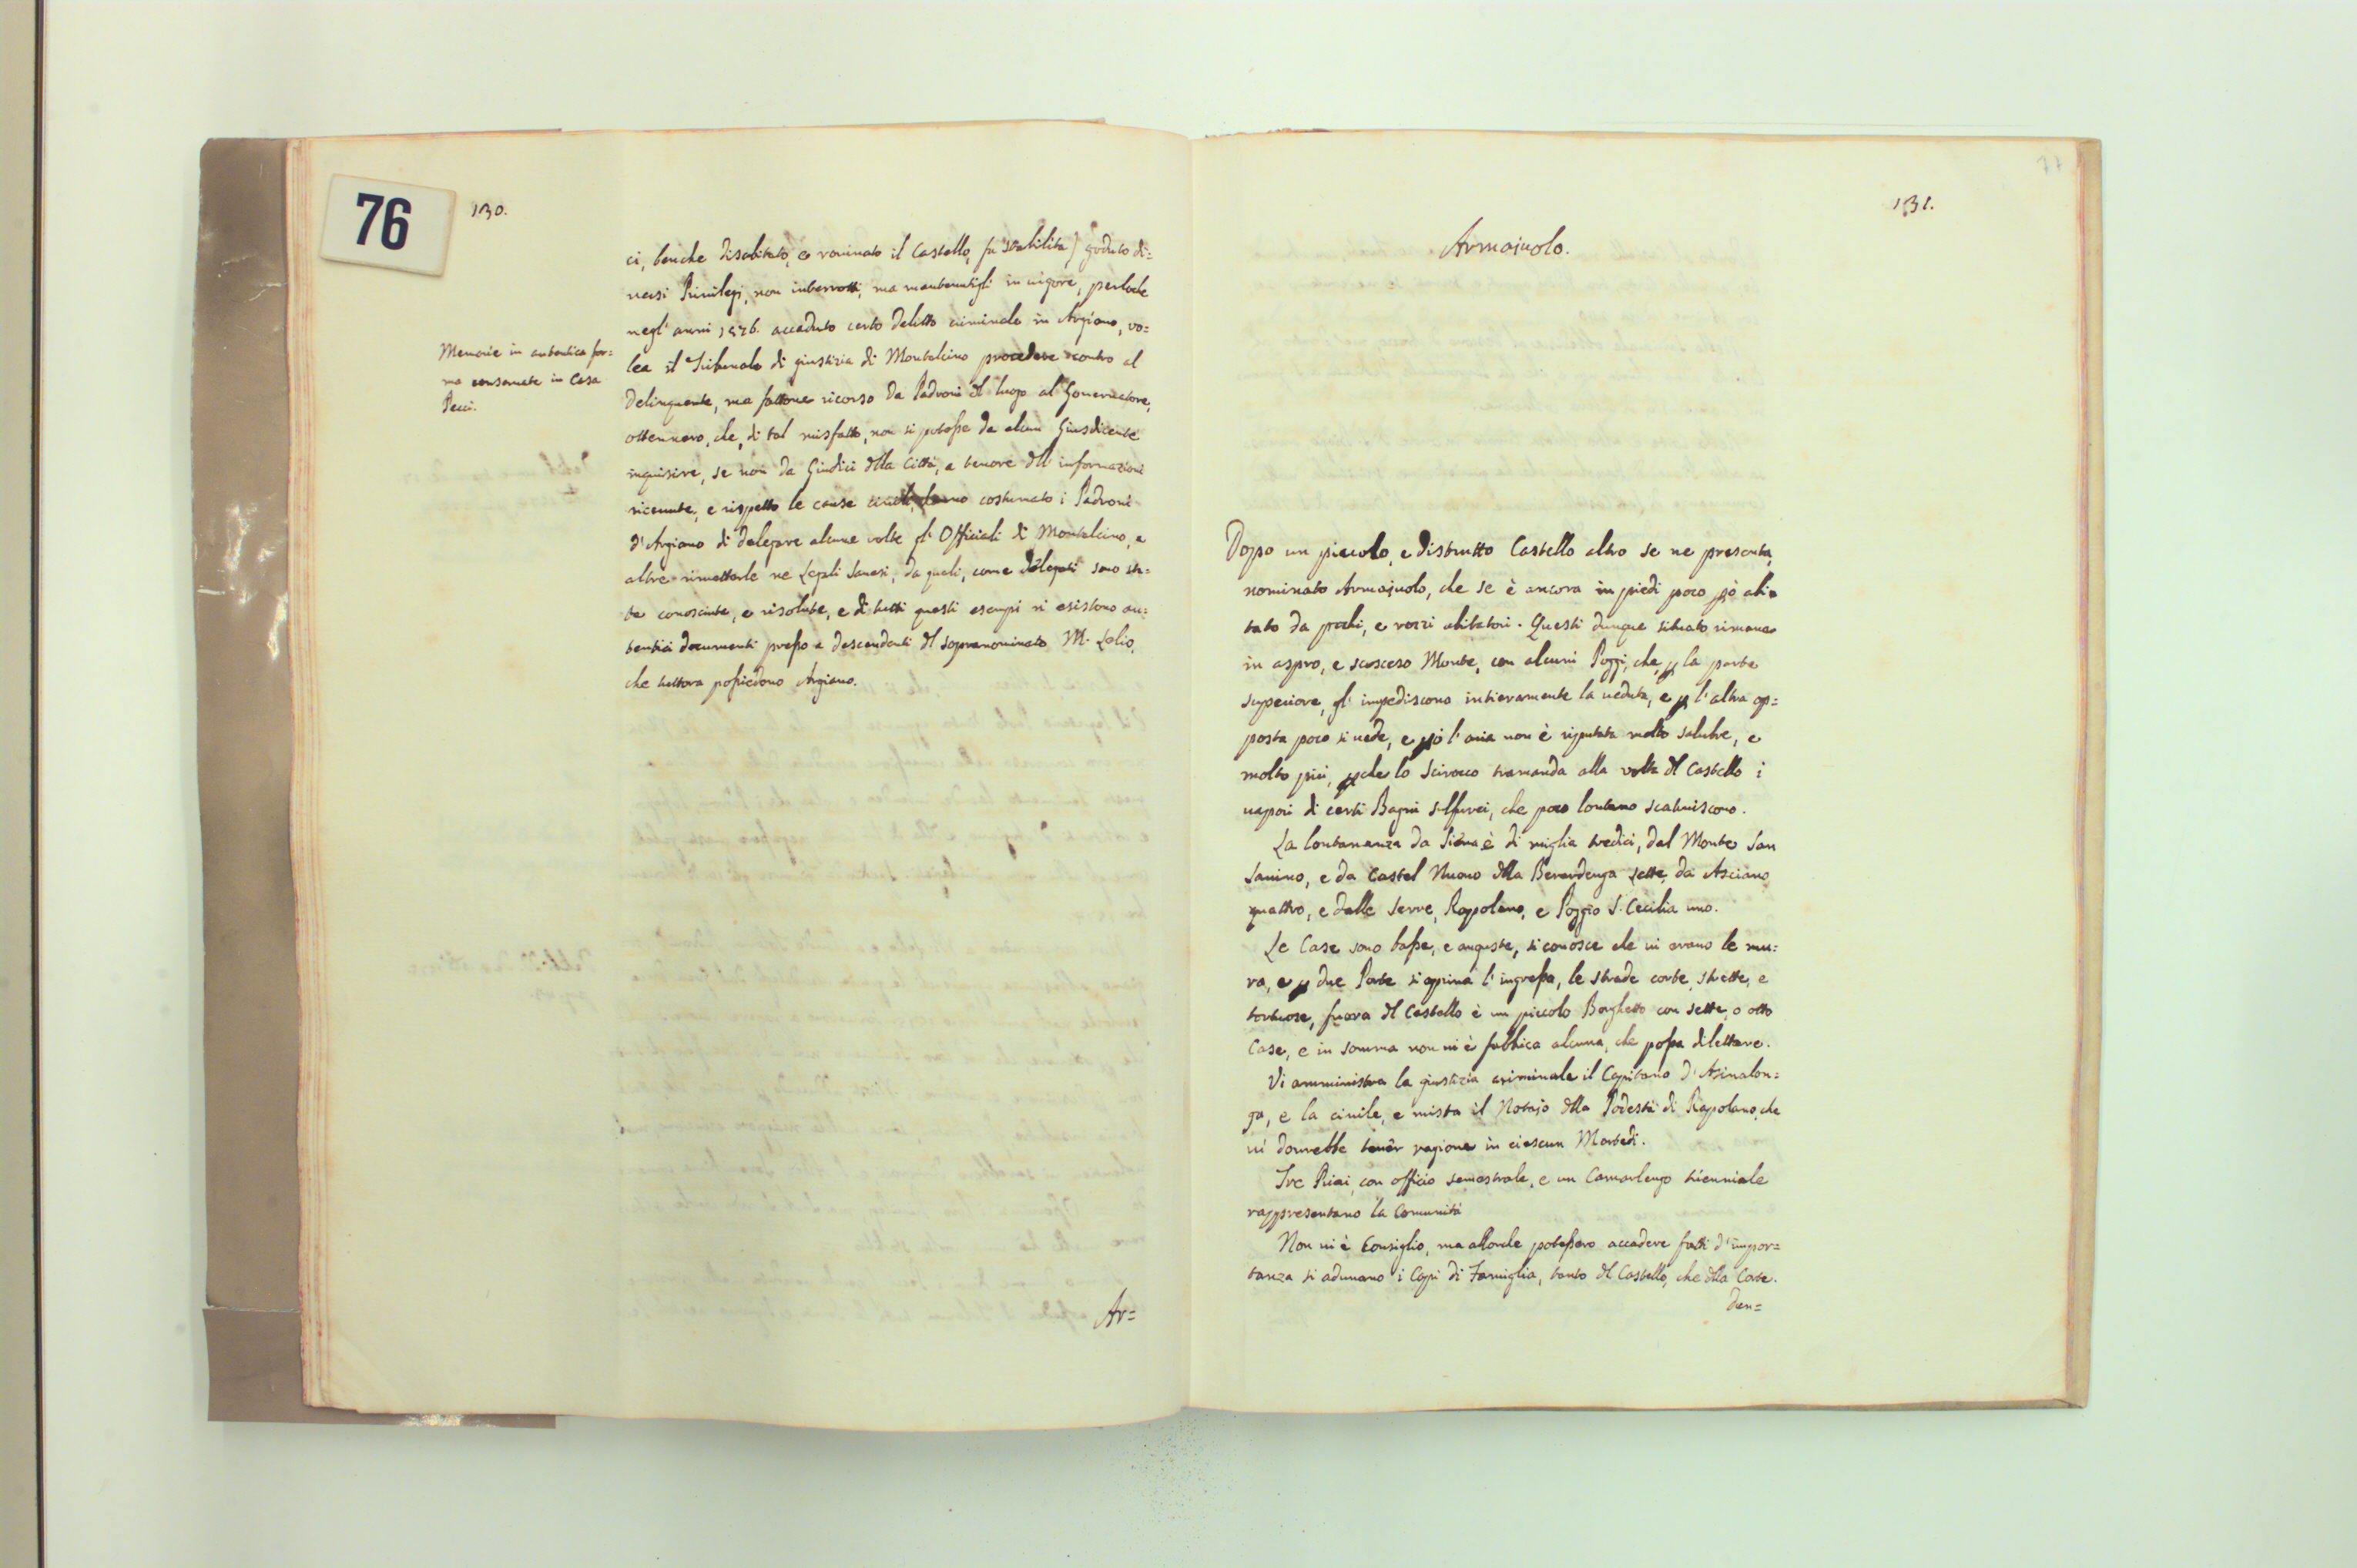 76
130.
ci, benche disabitato, e rovinato il Castello, fu stabilita) goduto di=
versi Privilegi, non interrotti, ma mantenutigli in vigore, perloche
negl' anni 1576. accaduto certo delitto criminale in Argiano, vo=
lea il Tribunale di giustizia di Montalcino procedere contro al
delinquente, ma fattone ricorso da Padroni dl luogo al Governatore,
ottennero, che, di tal misfatto, non si potesse da alcun Giusdicente
inquisire, se non da Giudici dlla Città, a tenore dll' informazioni
ricevute, e rispetto le cause civili, hanno costumato i Padroni
d'Argiano di delegare alcune volte gl' Officiali di Montalcino, e
altre rimetterle ne Legali Sanesi, da quali, come delegati sono sta=
te conosciute, e risolute, e di tutti questi esempi vi esistono au=
tentici documenti presso a descendenti dl sopranominato M. Lelio,
che tuttora possiedono Argiano.
Memorie in autentica for=
ma conservate in Casa
Pecci.
Ar=
131.
Armajuolo.
Dopo un piccolo, e distrutto Castello altro se ne presenta,
nominato Armajuolo, che se è ancora in piedi poco pò abi=
tato da pochi, e rozzi abitatori. Questi dunque situato rimane
in aspro, e scosceso Monte, con alcuni Poggi, che, p la parte
superiore, gl' impediscono intieramente la veduta, e p l'altra op=
posta poco si vede, e pò l'aria non è riputata molto salubre, e
molto più, pche lo Scirocco tramanda alla volta dl Castello i
vapori di certi Bagni sulfurei, che poco lontano scaturiscono.
La lontananza da Siena è di miglia tredici, dal Monte San
Savino, e da Castel Nuovo dlla Berardenga sette, da Asciano
quattro, e dalle Serre, Rapolano, e Poggio S. Cecilia uno.
Le Case sono basse, e anguste, si conosce che vi erano le mu=
ra, e p due Porte si apriva l'ingresso, le strade corte, strette, e
tortuose, fuora dl Castello è un piccolo Borghetto con sette, o otto
Case, e in somma non vi è fabbrica alcuna, che possa dilettare.
Vi amministra la giustizia criminale il Capitano d'Asinalon=
ga, e la civile, e mista il Notajo dlla Podestà di Rapolano, che
vi dovrebbe tener ragione in ciascun Martedì.
Tre Priori, con officio semestrale, e un Camarlengo triennale
rappresentano la Comunità
Non vi è Consiglio, ma allorche potessero accadere fatti d'impor=
tanza si adunano i Capi di Famiglia, tanto dl Castello, che dlla Corte.
Den=